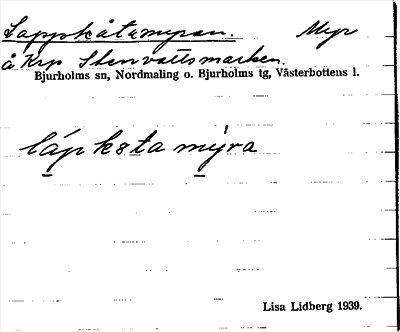 Lappkåtamyran. Myr
å Krp Stenvattsmarken.
Bjurholms sn, Nordmaling o. Bjurholms tg, Västerbottens l.
lápkåta mýra
Lisa Lidberg 1939.